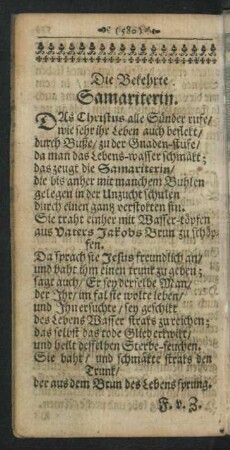 (580)
Die Bekehrte
Samariterin.
DAs Christus alle Sünder rufe/
wie sehr ihr Leben auch beflekt/
durch Busse/ zu der Gnaden-stufe/
da man das Lebens-wasser schmäkt;
das zeugt die Samariterin/
die bis anher mit manchem Buhlen
gelegen in der Unzucht schulen
durch einen ganz verstokten sin.
Sie traht einher mit Wasser-töpfen
aus Vaters Jakobs Brun zu schöp-
fen.
Da sprach sie Jesus freundlich an/
und baht ihm einen trunk zu geben;
sagt auch/ Er sey derselbe Man/
der Ihr/ im fal sie wolte leben/
und Ihn ersuchte/ sey geschikt
des Lebens Wasser straks zu reichen;
das selbst das tode Glied erkwikt/
und heilt desselben Sterbe-seuchen.
Sie baht/ und schmäkte straks den
Trunk/
der aus dem Brun des Lebens sprung.
F. v. Z.